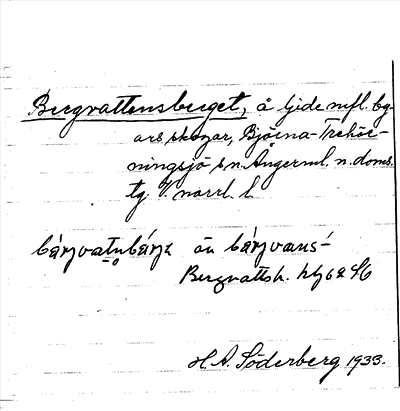 Bergvattensberget, å Ljide mfl. by-
ars skogar, Björna-Trehör-
ningsjö sn. Ångerml. n. doms.
tg V. norrl. l.
bárjvatnbárjz
Bergvattsh. hlj 62 46
H. A. Söderberg 1933.